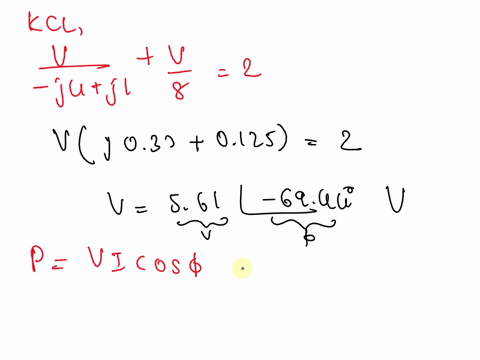 KCL,
V/(-j4+j1) + V/8 = 2
V(j0.33 + 0.125) = 2
V = 5.61 ∠-69.44° V
V ϕ
P = VI cosϕ